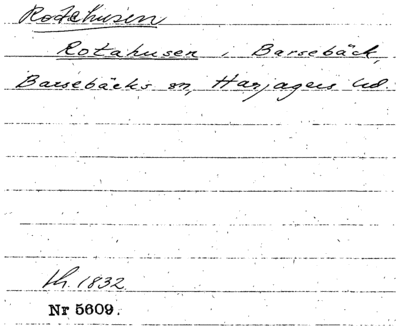 Rotahusen
Rotahusen, Barsebäck,
Barsebäcks sn, Harjagers hd.
lh. 1832
Nr 5609.